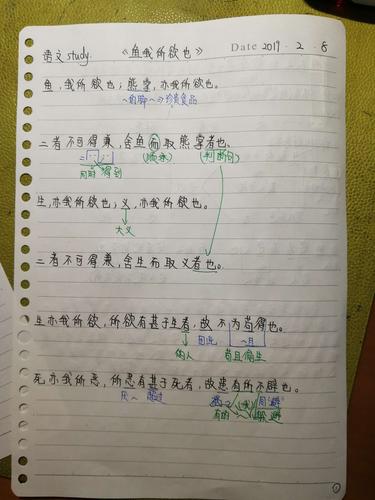 语文 study. 《鱼我所欲也》 Date 2019 . 2 . 8
鱼,我所欲也;熊掌,亦我所欲也。
~的脚~→珍贵食品
二者不可得兼,舍鱼而取熊掌者也。
(顺承) (判断句)
同时 得到
生,亦我所欲也;义,亦我所欲也。
大义
二者不可得兼,舍生而取义者也。
生亦我所欲,所欲有甚于生者,故不为苟得也。
的人 苟且偷生
死亦我所恶,所恶有甚于死者,故患有所不避也。
厌~ 超过 同"避"
有的 躲避